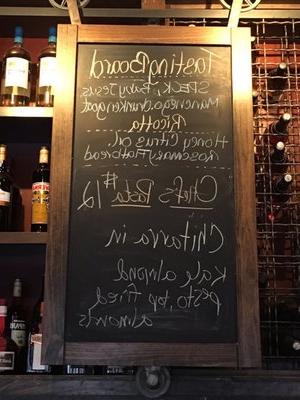 Tasting Board
Speck, Baby Jesus
Manchego, Drunken goat
Ricotta
Honey, Citrus oil,
Rosemary Flatbread
Chef's Pasta $12
Chitarra in
Kale almond
pesto, top fried
almonds